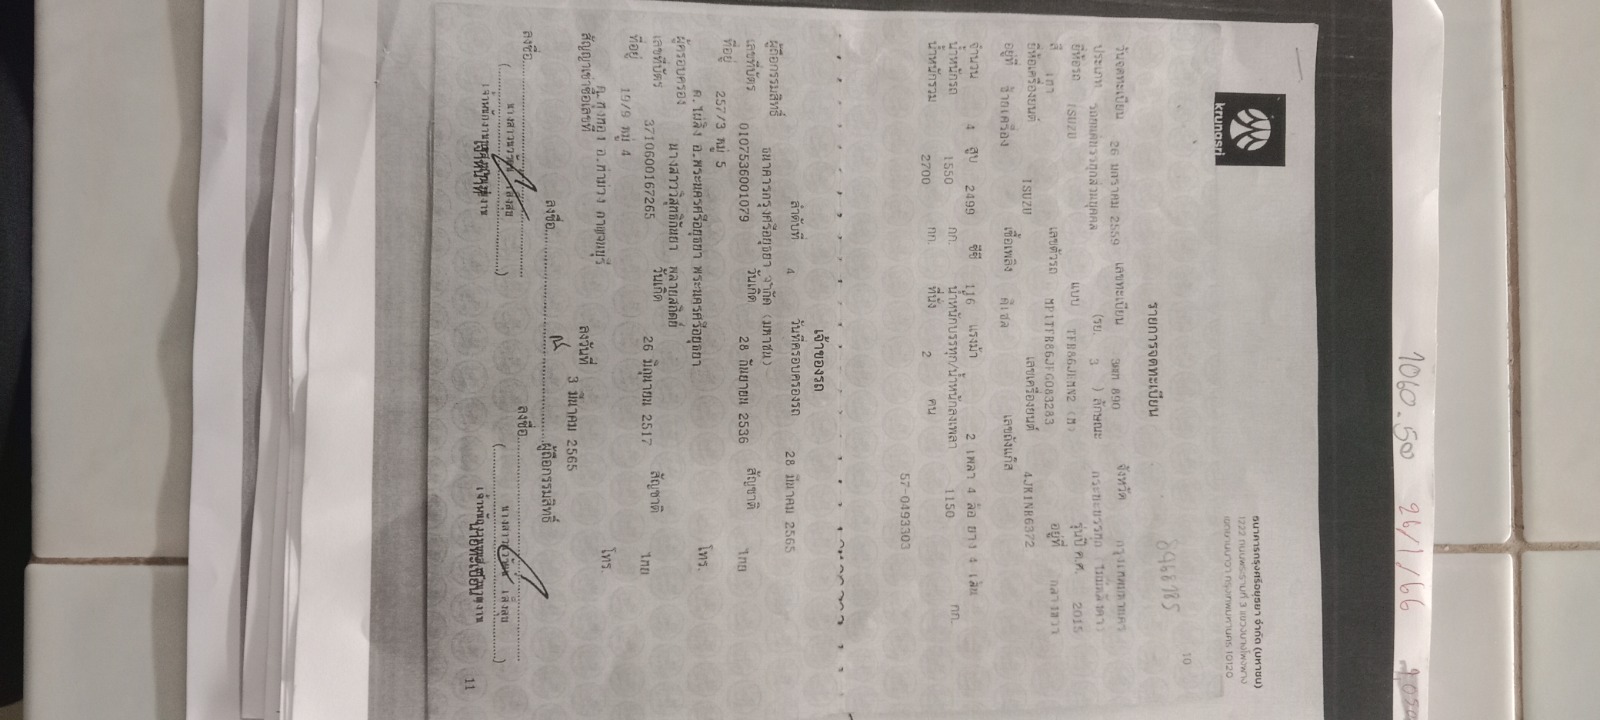 1060.50 26/1/66
krungsri
ธนาคารกรุงศรีอยุธยา จำกัด (มหาชน)
1222 ถนนพระรามที่ 3 แขวงบางโพงพาง
เขตยานนาวา กรุงเทพมหานคร 10120
10
รายการจดทะเบียน
วันจดทะเบียน 26 มกราคม 2559 เลขทะเบียน 890 จังหวัด กรุงเทพมหานคร
ประเภท รถยนต์บรรทุกส่วนบุคคล (รย. 3 ) ลักษณะ กระบะบรรทุก
ยี่ห้อรถ ISUZU แบบ รุ่นปี ค.ศ. 2015
สี เทา เลขตัวรถ อยู่ที่ กลางขวา
ยี่ห้อเครื่องยนต์ ISUZU เลขเครื่องยนต์ 4JK1NR6372
อยู่ที่ ซ้ายเครื่อง เชื้อเพลิง ดีเซล เลขถังแก๊ส
จำนวน 4 สูบ 2499 ซีซี 116 แรงม้า 2 เพลา 4 ล้อ ยาง 4 เส้น
น้ำหนักรถ 1550 กก. น้ำหนักบรรทุก/น้ำหนักลงเพลา 1150 กก.
น้ำหนักรวม 2700 กก. ที่นั่ง 2 คน
57-0493303
เจ้าของรถ
ลำดับที่ 4 วันที่ครอบครองรถ 28 มีนาคม 2565
ผู้ถือกรรมสิทธิ์ ธนาคารกรุงศรีอยุธยา จำกัด (มหาชน)
เลขที่บัตร 0107536001079 วันเกิด 28 กันยายน 2536 สัญชาติ ไทย
ที่อยู่ 257/3 หมู่ 5
ต.ไผ่ลิง อ.พระนครศรีอยุธยา พระนครศรีอยุธยา โทร.
ผู้ครอบครอง นางสาววิสุทธิกันยา พลายสถิตย์
เลขที่บัตร 3710600167265 วันเกิด 26 มิถุนายน 2517 สัญชาติ ไทย
ที่อยู่ 19/9 หมู่ 4
อ.ท่าม่วง กาญจนบุรี โทร.
สัญญาเช่าซื้อเลขที่ ลงวันที่ 3 มีนาคม 2565
ลงชื่อ ผู้ถือกรรมสิทธิ์
ลงชื่อ ลงชื่อ
11